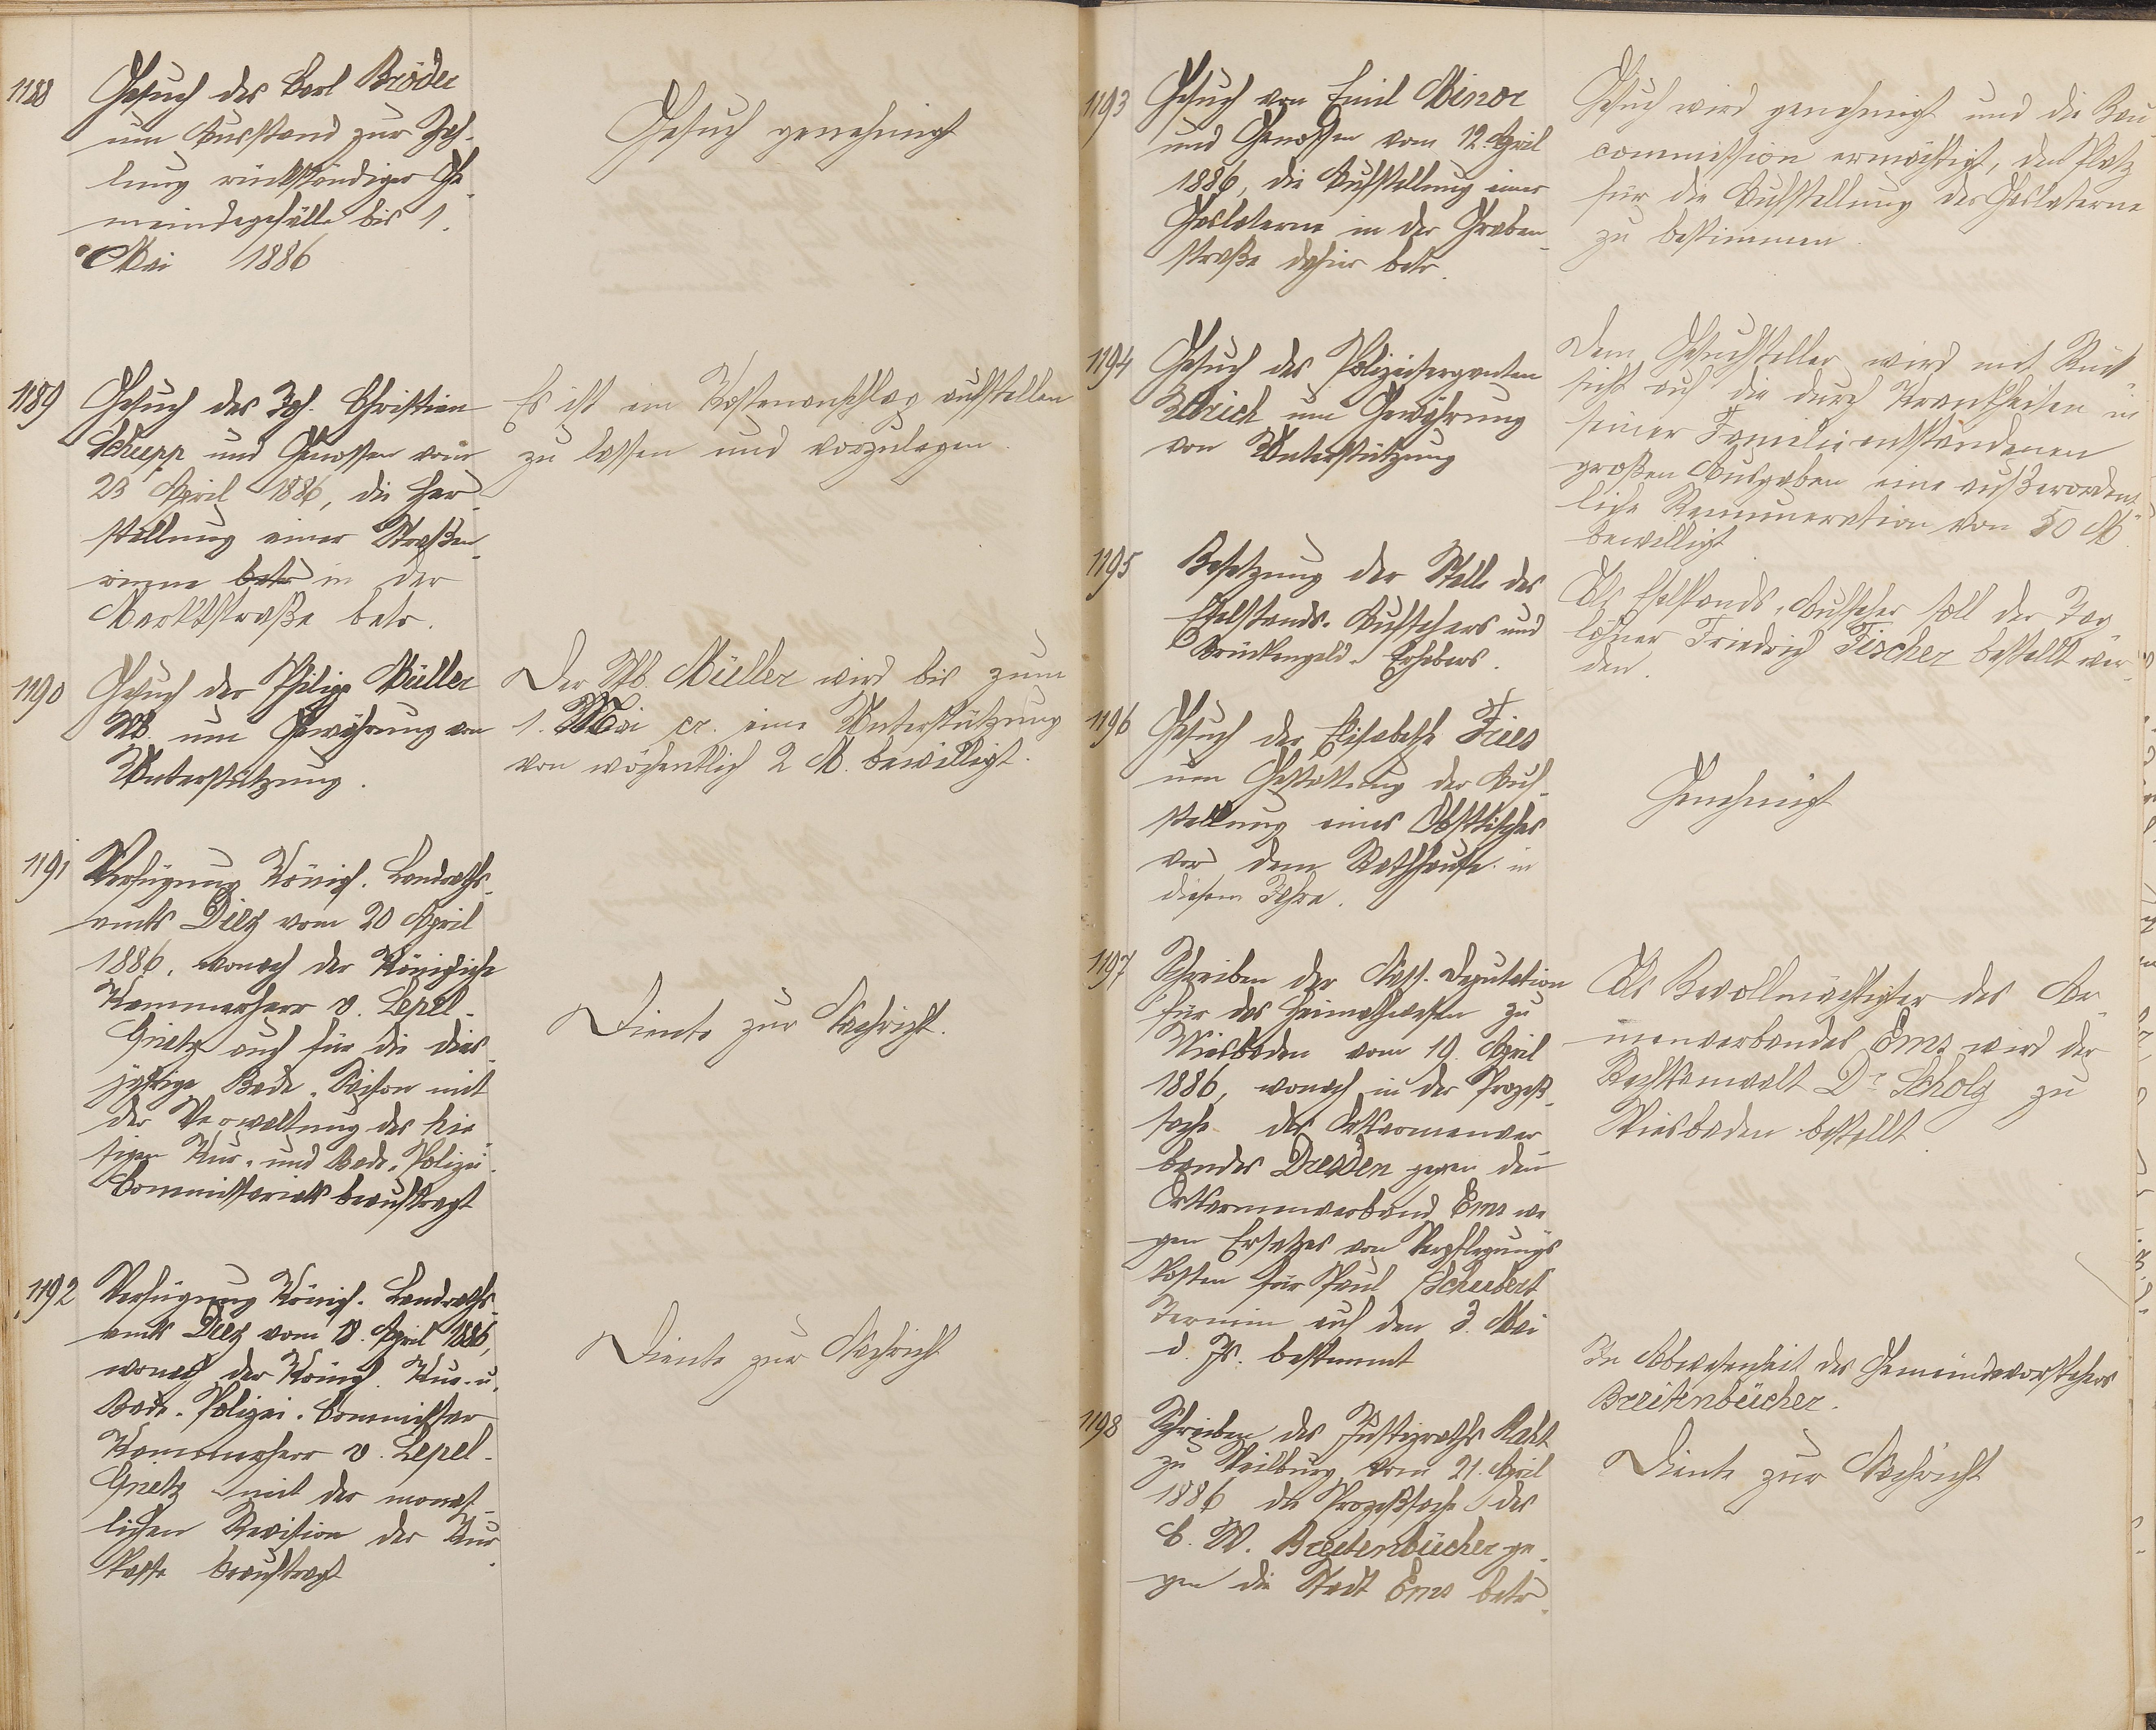 1188
Gesuch des Carl Bröder
um Ausstand zur Zah-
lung rückständiger Ge-
meindegefälle bis 1.
Mai 1886
Gesuch genehmigt
1189
Gesuch des Joh. Christian
Schupp und Genossen vom
23 April 1886, die Her-
stellung einer Straßen-
rinne betr in der
Marktstraße betr.
Es ist ein Kostenanschlag aufstellen
zu lassen und vorzulegen.
1190
Gesuch der Philipp Müller
Wb. um Gewährung von
Unterstützung.
Der Wb. Müller wird bis zum
1. Mai cr. eine Unterstützung
von wöchentlich 2 M. bewilligt.
1191
Verfügung Königl. Landraths-
amts Diez vom 20 April
1886, wonach der Königliche
Kammerherr v. Lepel-
Gnietz auch für die dies-
jährige Bade-Saison mit
der Verwaltung des hie-
sigen Kur- und Bade-Polizei-
Commissariats beauftragt
Diente zur Nachricht.
1192
Verfügung Königl. Landraths-
amts Diez vom 18. April 1886,
wonach der Königl. Kur- u.
Bade-Polizei-Commissar
Kammerherr v. Lepel-
Gnietz mit der monat-
lichen Revision der Kur-
kasse beauftragt
Diente zur Nachricht
1193
Gesuch von Emil Minor
und Genossen vom 12. April
1886, die Aufstellung einer
Gaslaterne in der Graben-
straße dahier betr.
Gesuch wird genehmigt und die Bau
commission ermächtigt, den Platz
für die Aufstellung der Gaslaterne
zu bestimmen.
1194
Gesuch des Polizeisergeanten
um Gewährung
von Unterstützung
Dem Gesuchsteller wird mit Rück-
sicht auf die durch Krankheiten in
seiner Familie entstandenen
großen Ausgaben eine außerordent-
liche Remuneration von 50 M.
bewilligt
1195
Besetzung der Stelle des
Eselstands-Aufsehers und
Brückengeld-Erhebers.
Als Eselstands-Aufseher soll der Tag
löhner Friedrich Fischer bestellt wer-
den.
1196
Gesuch der Elisabeth Fries
um Gestattung der Auf-
stellung eines Obsttisches
vor dem Rathhause in
diesem Jahre.
Genehmigt
1197
Schreiben der Nass. Deputation
für das Heimathwesen zu
Wiesbaden vom 19. April
1886, wonach in der Prozeß-
sache des Ortsarmenver-
bandes Dresden gegen den
Ortsarmenverband Ems we-
gen Ersatzes von Verpflegungs
kosten für Paul Schubert
Termin auf den 3. Mai
d. Js. bestimmt
Als Bevollmächtigter des Ar-
menverbandes Ems wird der
Rechtsanwalt Dr Scholz zu
Wiesbaden bestellt
1198
Schreiben des Justizraths
zu Weilburg vom 21. April
1886 die Prozeßsache des
C. W. Breitenbücher ge-
gen die Stadt Ems betr.
In Abwesenheit des Gemeindevorstehers
Breitenbücher.
Diente zur Nachricht